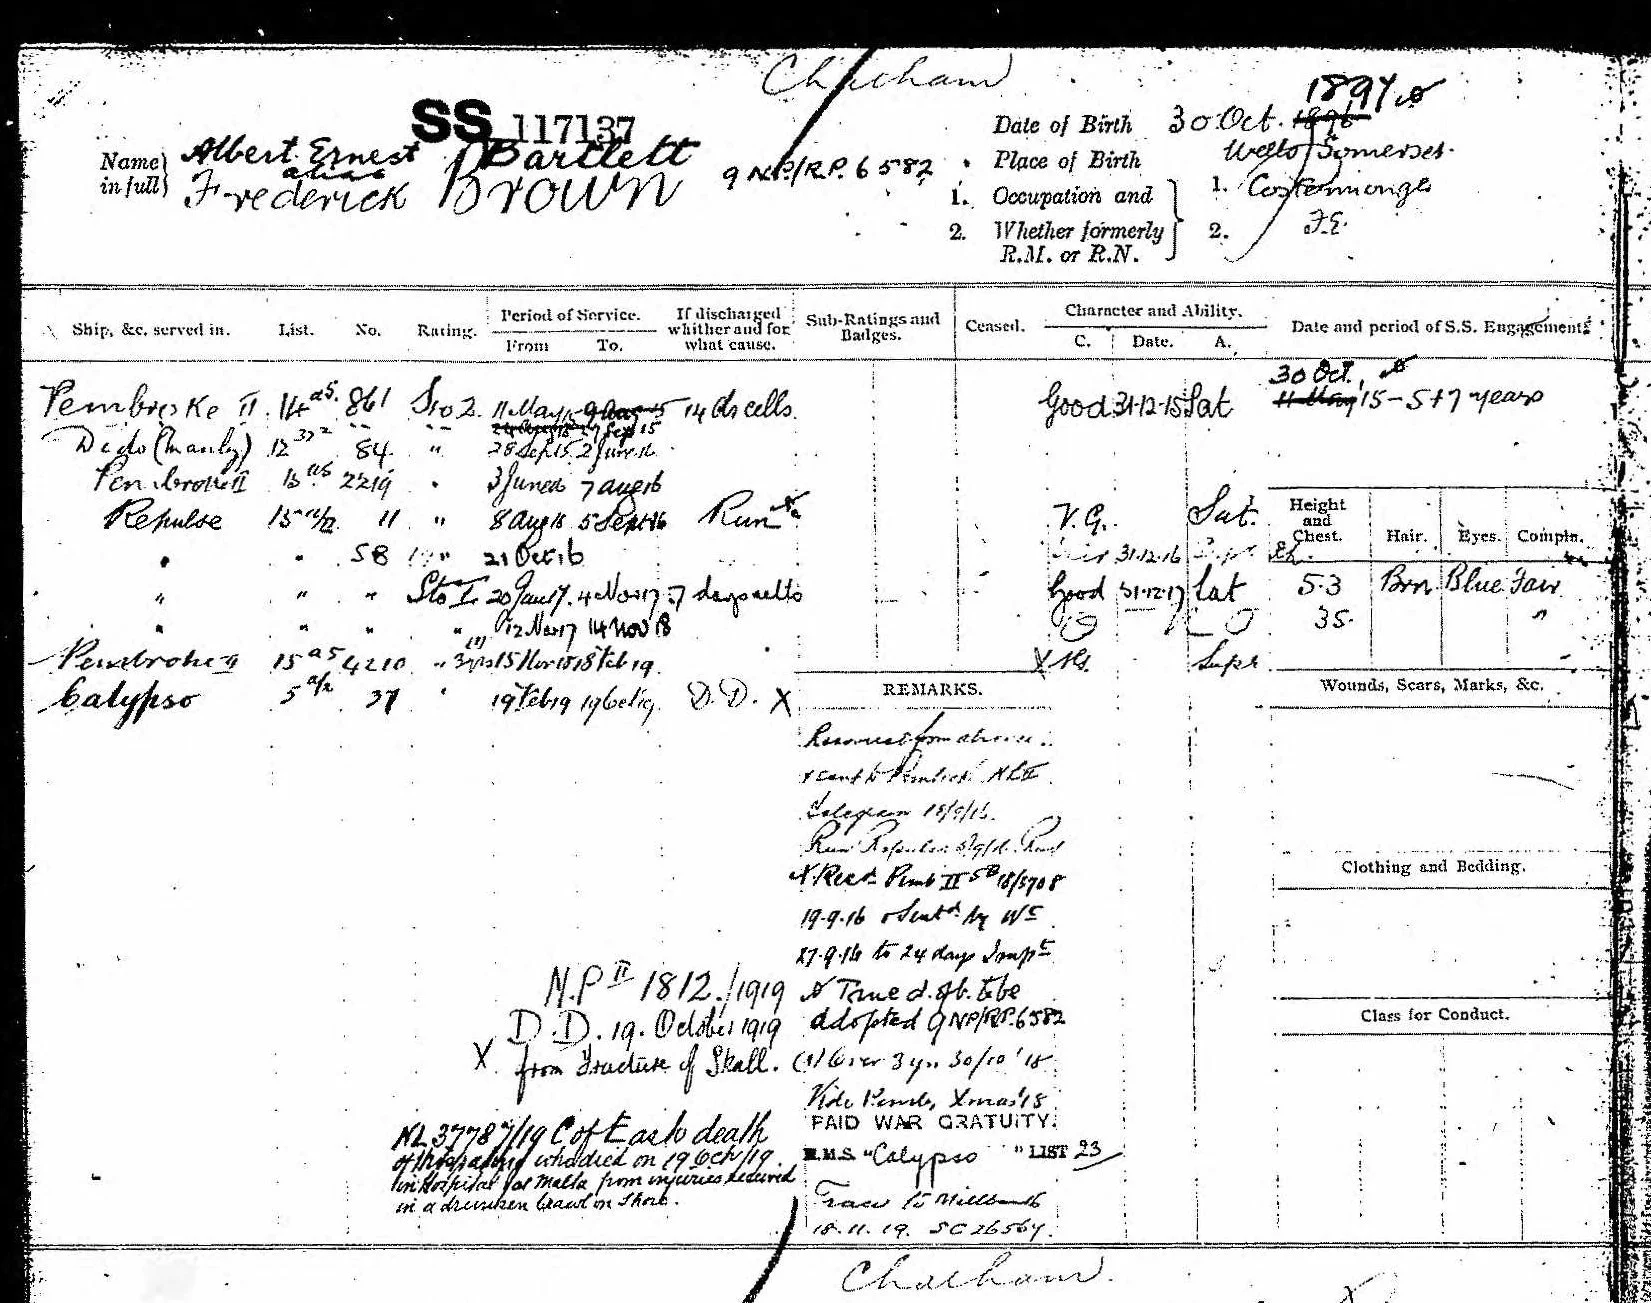 Chatham
SS 117137
Name in full
Albert Ernest Bartlett
alias
Frederick Brown
9 NP/RP. 6582
Date of Birth 30 Oct. 1896 1897
Place of Birth Wells Somerset.
1. Occupation and 1.
2. Whether formerly R.M. or R.N. 2.
Ship, &c. served in. List. No. Rating. Period of Service. From To. If discharged whither and for what cause. Sub-Ratings and Badges. Ceased. Character and Ability. C. Date. A. Date and period of S.S. Engagements
30 Oct.
Pembroke II 14 a5. 861 Sto 2. 11 May 15 9 Aug 15 14 ds cells. Good 31.12.15 Sat 11 May 15 - 5+7 years
27 Sep 15
Dido (Manly) 12 84 " 28 Sep 15 2 June 16
Pembroke II 15 a5 2219 " 3 June 16 7 Aug 16
Repulse 15 a/2 11 " 8 Aug 16 5 Sept 16 Run V.G. Sat.
" " 58 " 21 Oct 16 31.12.16
" " " Sto I 20 Jan 17. 4 Nov 17 7 days cells Good 31.12.17 Sat
" " " " 12 Nov 17 14 Nov 18
Pembroke II 15 a5 4210 " 15 Nov 18 18 Feb 19. Supr
Calypso 5 a/2 37 " 19 Feb 19 19 Oct 19. D.D. X
Height and Chest. Hair. Eyes. Compln.
5.3 Brn Blue Fair
35. "
REMARKS.
Wounds, Scars, Marks, &c.
Telegram 18/9/16.
Run Repulse
X Recd. Pemb II 18/5708
19.9.16 & Sentd. by Wt
27.9.16 to 24 days Impt
True d. of b. to be
adopted 9 NP/RP. 6582
(1) Over 3 yrs 30/10/18
Vide Pemb, Xmas '18
PAID WAR GRATUITY.
H.M.S. "Calypso" LIST 23
Trace to
18.11.19. SC 26564.
Clothing and Bedding.
Class for Conduct.
N.P II 1812./1919
D.D. 19. October 1919
X from Fracture of Skull.
NL 37787/19 C of E as to death
of this rating who died on 19 Oct /19
in Hospital at Malta from injuries received
in a drunken brawl on shore.
Chatham.